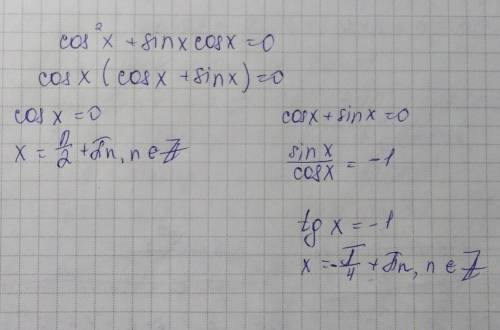 cos²x + sinx cosx = 0
cosx (cosx + sinx) = 0
cosx = 0
x = π/2 + πn, n ∈ Z
cosx + sinx = 0
sinx/cosx = -1
tgx = -1
x = -π/4 + πn, n ∈ Z